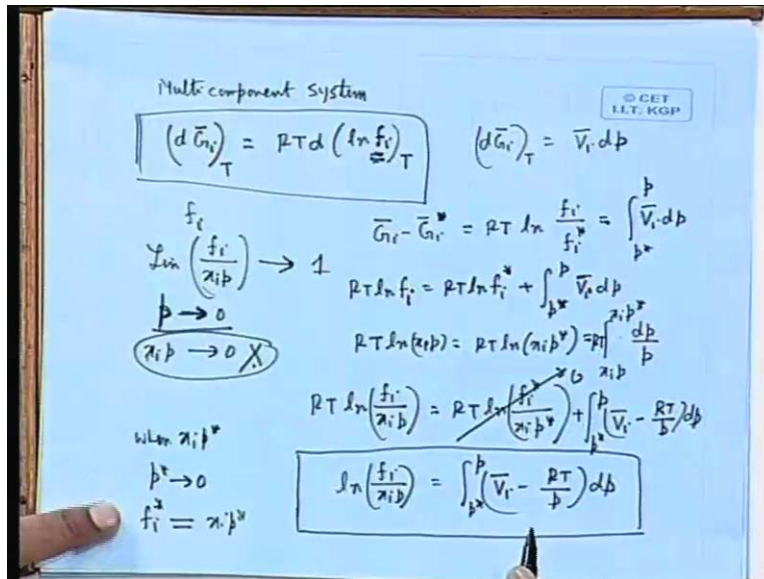 Multicomponent System
© CET
I.I.T. KGP
(dG̅ᵢ)_T = RTd (ln fᵢ)_T
(dG̅ᵢ)_T = V̅ᵢ dp
fᵢ
G̅ᵢ - G̅ᵢ* = RT ln fᵢ/fᵢ* = ∫_{p*}^{p} V̅ᵢ dp
Lim (fᵢ/xᵢp) → 1
p → 0
RT ln fᵢ = RT ln fᵢ* + ∫_{p*}^{p} V̅ᵢ dp
xᵢp → 0 X
RT ln(xᵢp) = RT ln(xᵢp*) = RT ∫_{xᵢp}^{xᵢp*} dp/p
RT ln(fᵢ/xᵢp) = RT ln(fᵢ*/xᵢp*) 0 + ∫_{p*}^{p} (V̅ᵢ - RT/p) dp
when xᵢp*
p* → 0
fᵢ* = xᵢp*
ln(fᵢ/xᵢp) = ∫_{p*}^{p} (V̅ᵢ - RT/p) dp